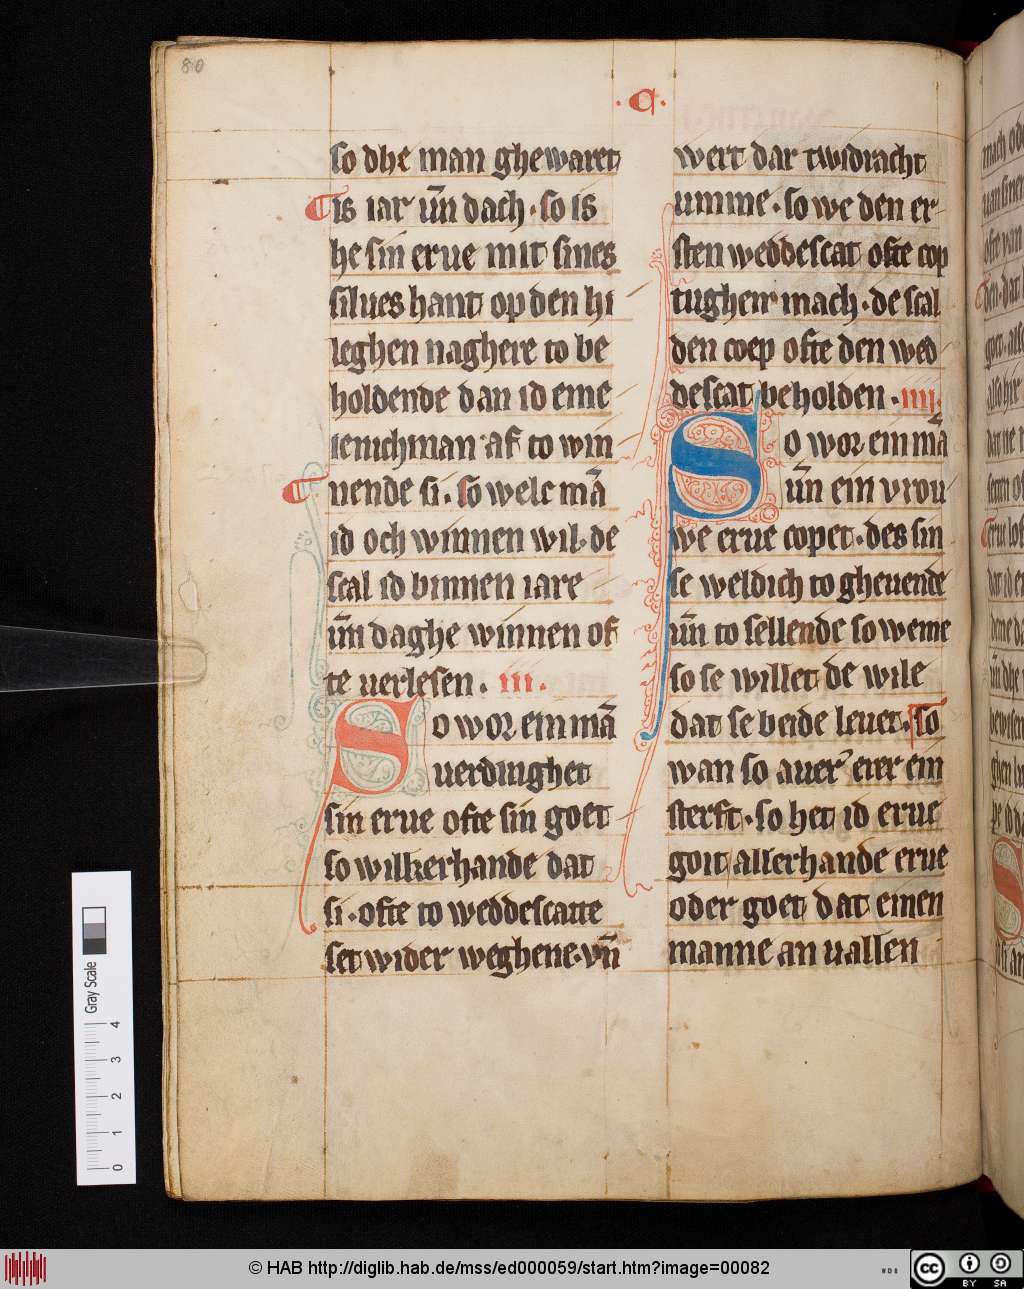 80
· C ·
so dhe man ghewaret
is iar uñ dach · so is
he sin erue mit sines
silues hant op den hi
leghen naghere to be
holdende dan id eme
ienichman af to win
nende si · so welc mā
id och winnen wil · de
scal id binnen iare
uñ daghe winnen of
te uerlesen · iii ·
So wor ein mā
uerdinghet
sin erue ofte sin goet
so wilkerhande dat
si · ofte to weddescatte
set wider weghene · vñ
wert dar twidracht
umme · so we den er
sten weddescat ofte cop
tughen mach · de scal
den coep ofte den wed
descat beholden · iiii ·
So wor ein mā
uñ ein vrou
we erue copet · des sin
se weldich to gheuende
uñ to sellende so weme
so se willet de wile
dat se beide leuet · so
wan so auer erer ein
sterft · so het id erue
goit allerhande erue
oder goet dat einen
manne an uallen
Gray Scale
0 1 2 3 4
© HAB http://diglib.hab.de/mss/ed000059/start.htm?image=00082
WDB
CC BY SA